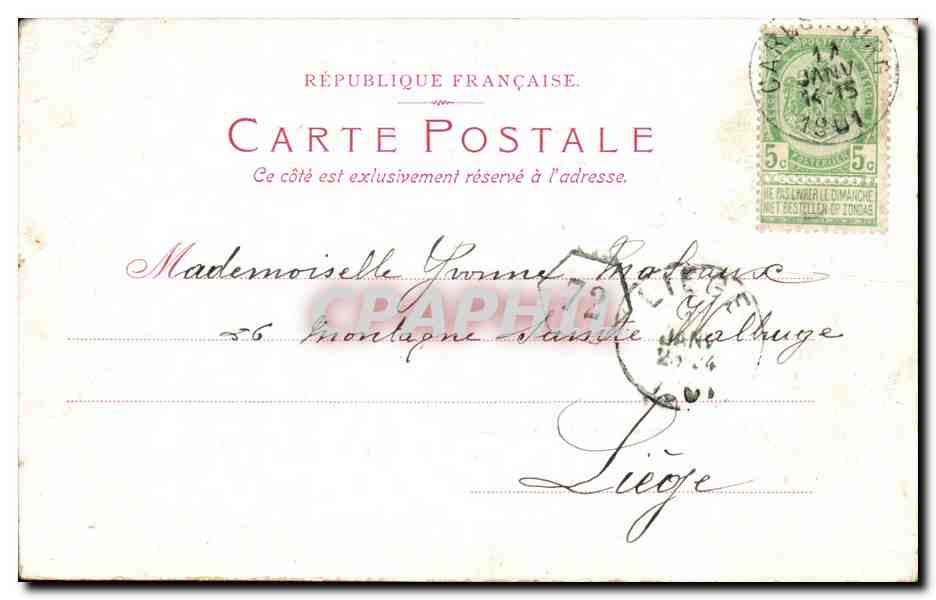 RÉPUBLIQUE FRANÇAISE.
CARTE POSTALE
Ce côté est exclusivement réservé à l'adresse.
11
JANV
1901
5c POSTERIJEN 5c
NE PAS LIVRER LE DIMANCHE
NIET BESTELLEN OP ZONDAG
Mademoiselle Yvonne
56 Montagne Sainte Walburge
Liège
72
LIEGE
JANV
CPAPHIL